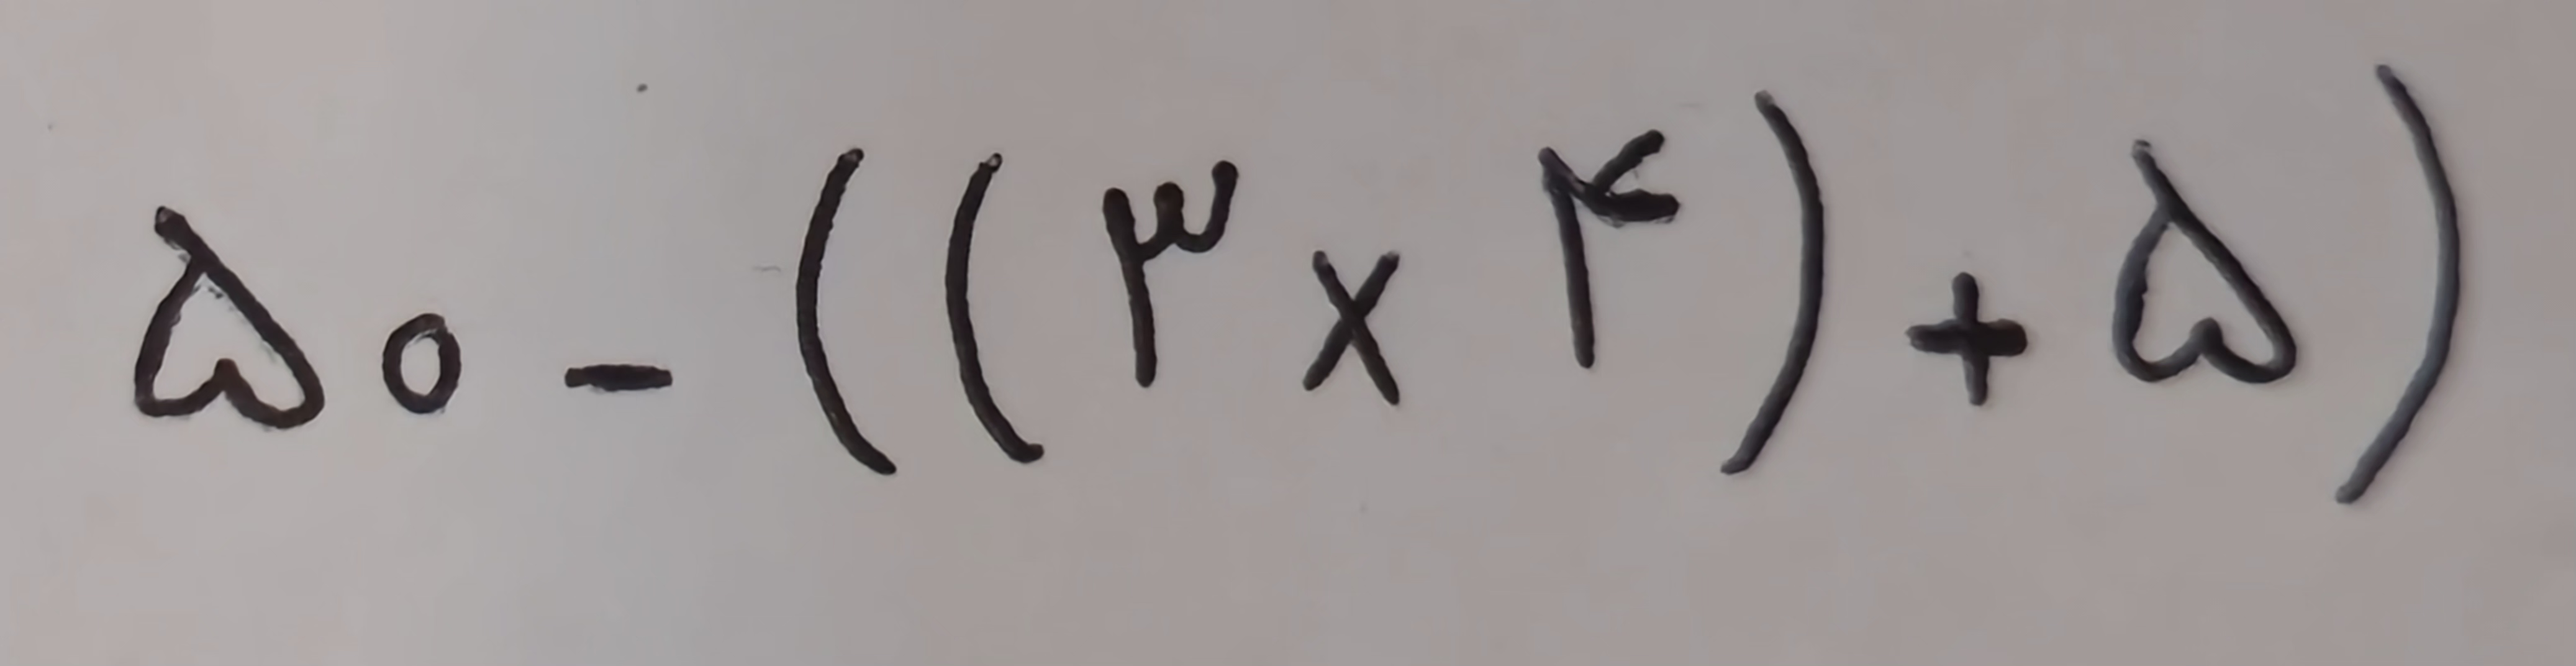 ۵۰ - ((۳ × ۴) + ۵)